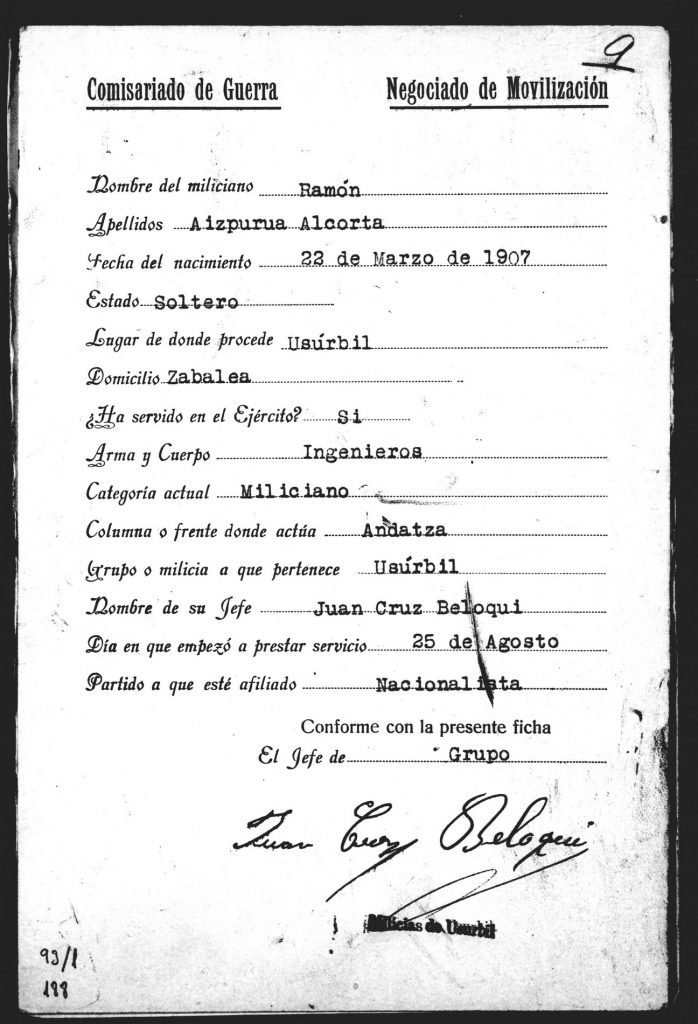 9
Comisariado de Guerra Negociado de Movilización
Nombre del miliciano Ramón
Apellidos Aizpurua Alcorta
Fecha del nacimiento 22 de Marzo de 1907
Estado Soltero
Lugar de donde procede Usúrbil
Domicilio Zabalea
¿Ha servido en el Ejército? Si
Arma y Cuerpo Ingenieros
Categoría actual Miliciano
Columna o frente donde actúa Andatza
Grupo o milicia a que pertenece Usúrbil
Nombre de su Jefe Juan Cruz Beloqui
Día en que empezó a prestar servicio 25 de Agosto
Partido a que esté afiliado Nacionalista
Conforme con la presente ficha
El Jefe de Grupo
Juan Cruz Beloqui
Milicias de Usurbil
93/1
188